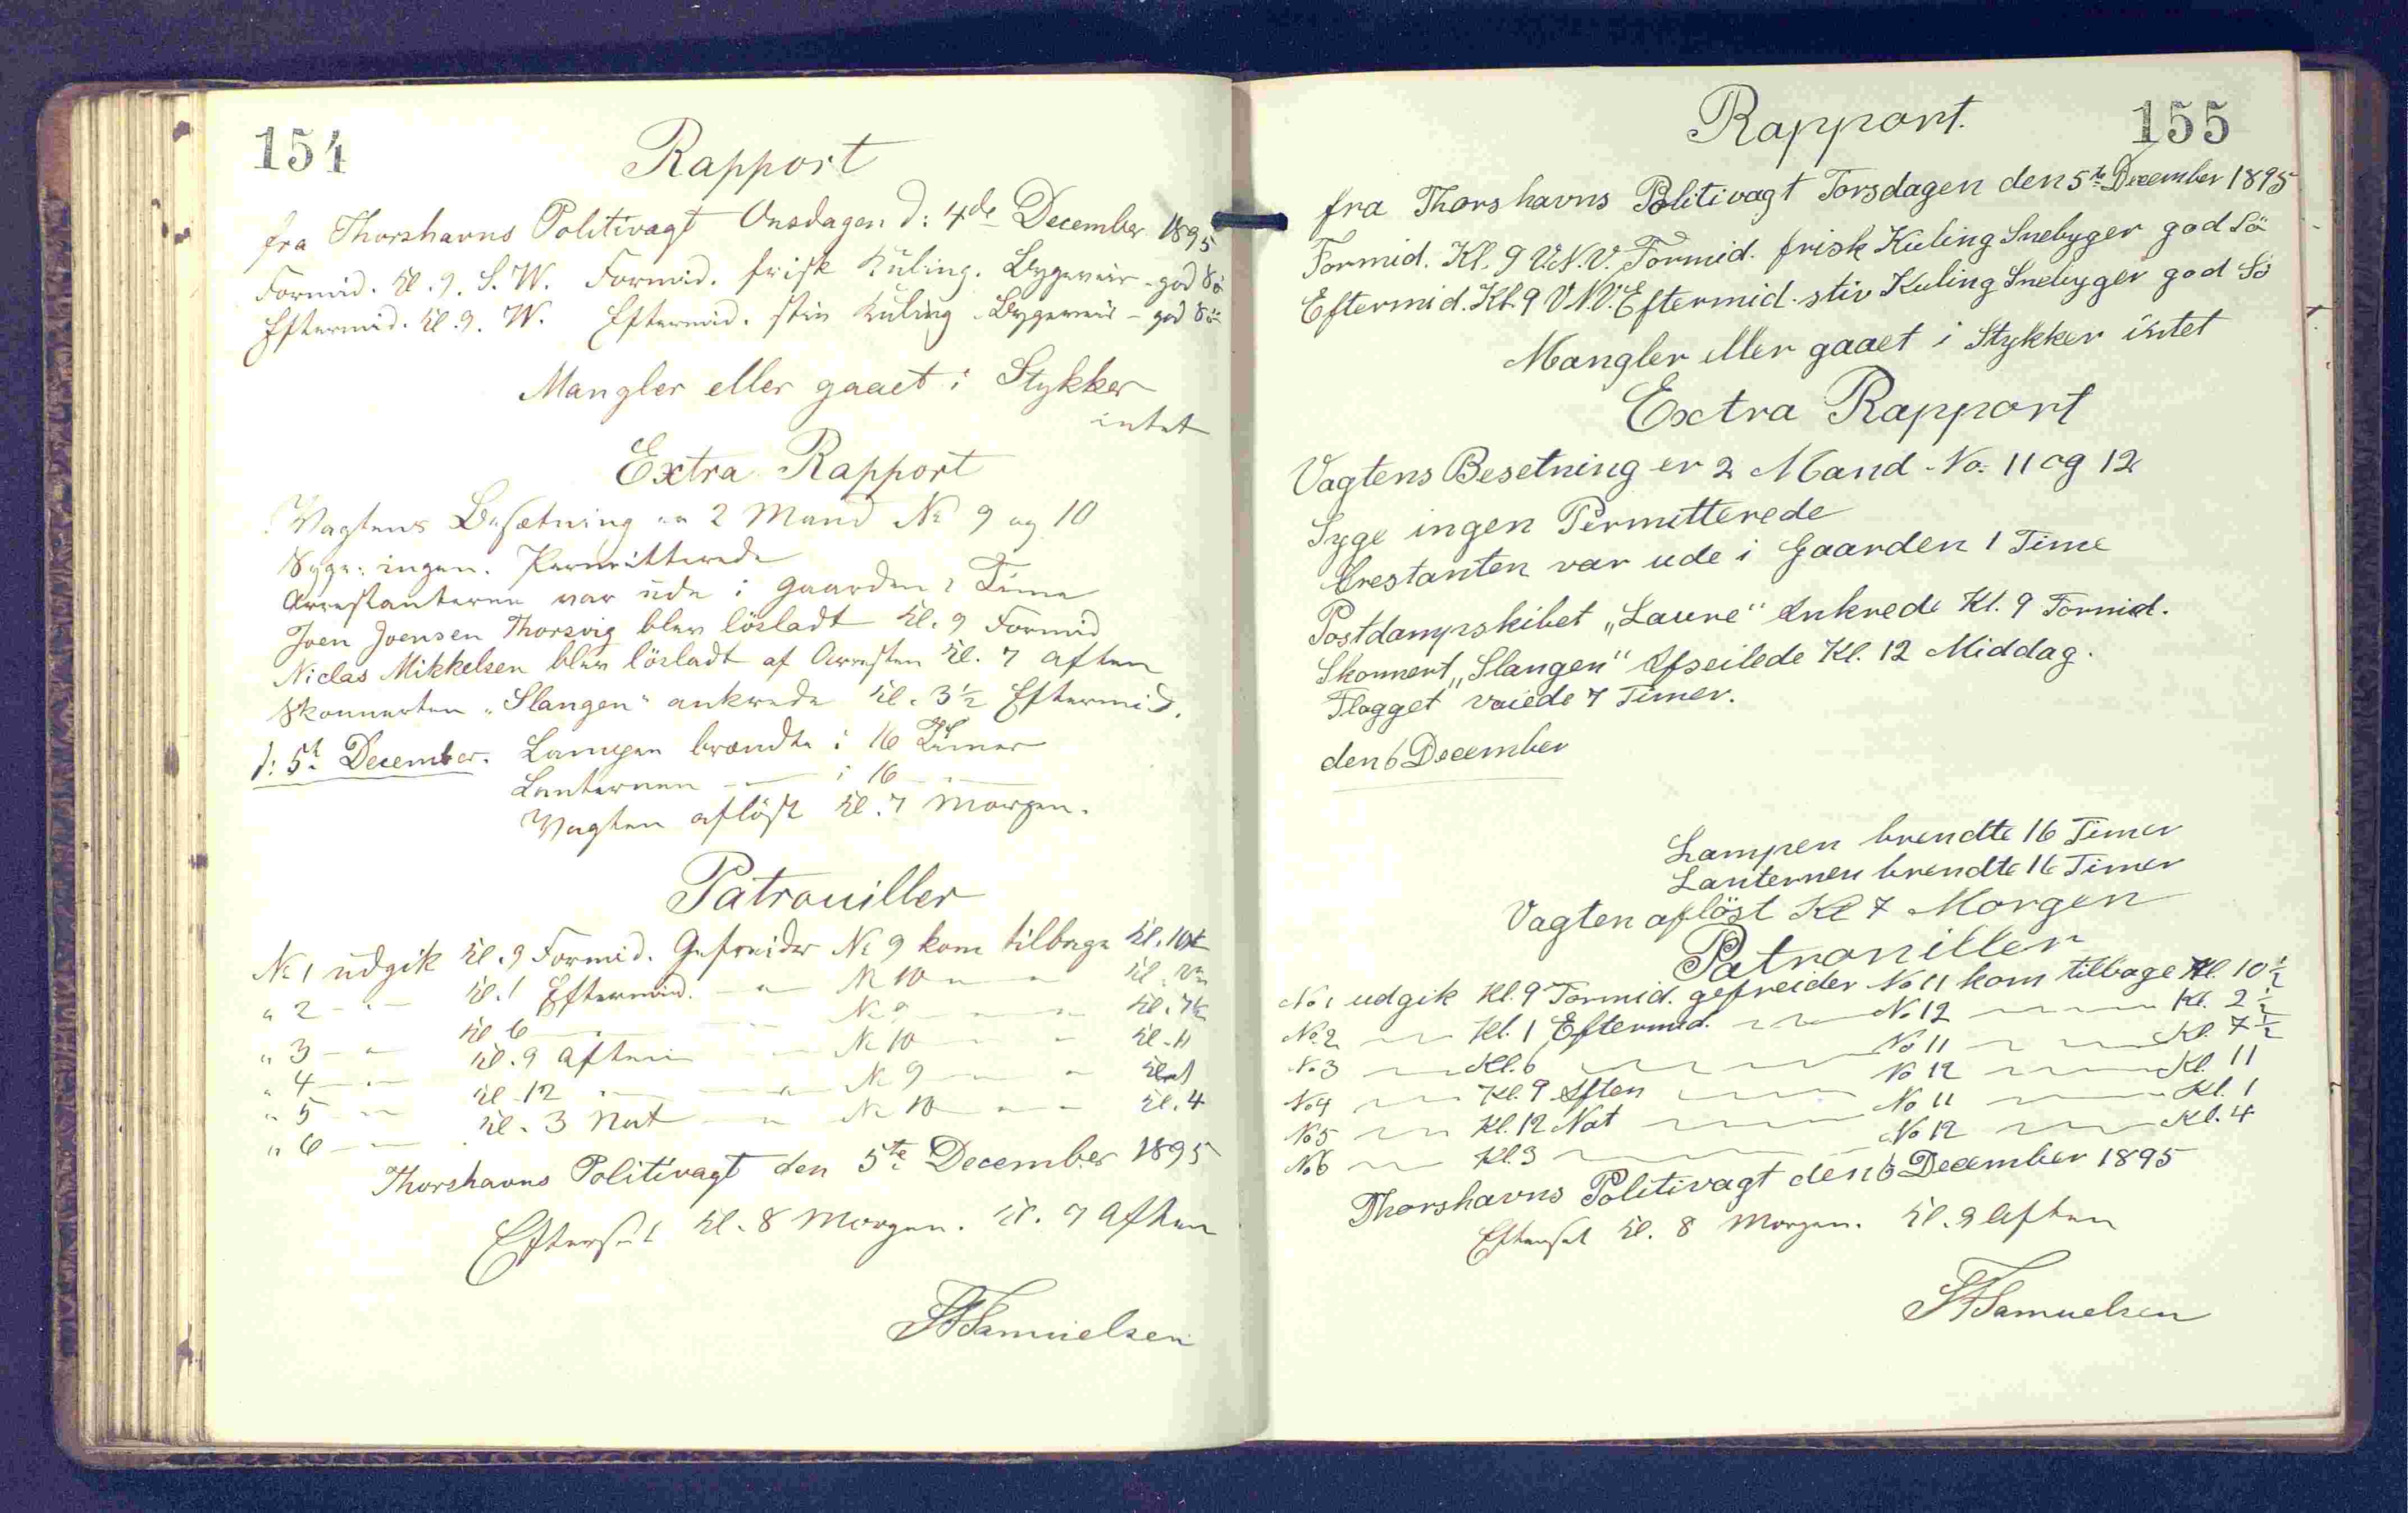 154
Rapport
fra Thorshavns Politivagt Onsdagen d: 4de December 1895
Formid. Kl. 9. S.W. Formid. frisk Kuling. Bygeveir - god Sö
Eftermid. Kl. 9. W. Eftermid. stiv Kuling Bygeveir - god Sö
Mangler eller gaaet i Stykker
intet
Extra Rapport
Vagtens Besætning er 2 Mand No 9 og 10
Syge: ingen. Permitterede
Arrestanterne var ude i Gaarden 1 Time
Joen Joensen Thorsvig blev lösladt Kl. 9 Formid
Niclas Mikkelsen blev lösladt af Arresten Kl. 7 Aften
Skonnerten „Slangen“ ankrede Kl. 3½ Eftermid.
d: 5t December. Lampen brændte i 16 Timer
Lanternen — i 16 —
Vagten aflöst Kl. 7 Morgen.
Patrouiller
No 1 udgik Kl. 9 Formid. Gefreider No 9 kom tilbage Kl. 10½
" 2 - " - Kl. 1 Eftermid. — " No 10 — " — Kl.
" 3 - " Kl 6 — No 9 — " — Kl. 7½
" 4 - " Kl. 9 Aften — No 10 — " Kl. 11
" 5 - " Kl. 12 " — " No 9 — " Kl. 1
" 6 - " Kl. 3 Nat — " No 10 — " Kl. 4
Thorshavns Politivagt den 5te December 1895
Efterset Kl. 8 Morgen. Kl. 7 Aften
Samuelsen
155
Rapport.
fra Thorshavns Politivagt Torsdagen den 5te December 1895
Formid. Kl. 9 V.N.V. Formid. frisk Kuling Snebyger god Sö
Eftermid. Kl. 9 V.N.V. Eftermid. stiv Kuling Snebyger god Sö
Mangler eller gaaet i Stykker intet
Extra Rapport
Vagtens Besetning er 2 Mand No. 11 og 12
Syge ingen Permitterede
Arestanten var ude i Gaarden 1 Time
Postdampskibet „Laure“ Ankrede Kl. 9 Formid.
Skonnert „Slangen“ Afseilede Kl. 12 Middag.
Flagget vaiede 7 Timer.
den 6 December
Lampen brendte 16 Timer
Lanternen brendte 16 Timer
Vagten aflöst Kl 7 Morgen
Patrouiller
No 1 udgik Kl. 9 Formid. gefreider No 11 kom tilbage Kl. 10½
No. 2 — Kl. 1 Eftermid. — No 12 — Kl. 2½
No 3 — Kl. 6 — No 11 — Kl. 7½
No 4 — Kl. 9 Aften — No 12 — Kl. 11
No 5 — Kl. 12 Nat — No 11 — Kl. 1
No 6 — Kl. 3 — No 12 — Kl. 4
Thorshavns Politivagt den 6 December 1895
Efterset Kl. 8 Morgen. Kl. 9 Aften
Samuelsen